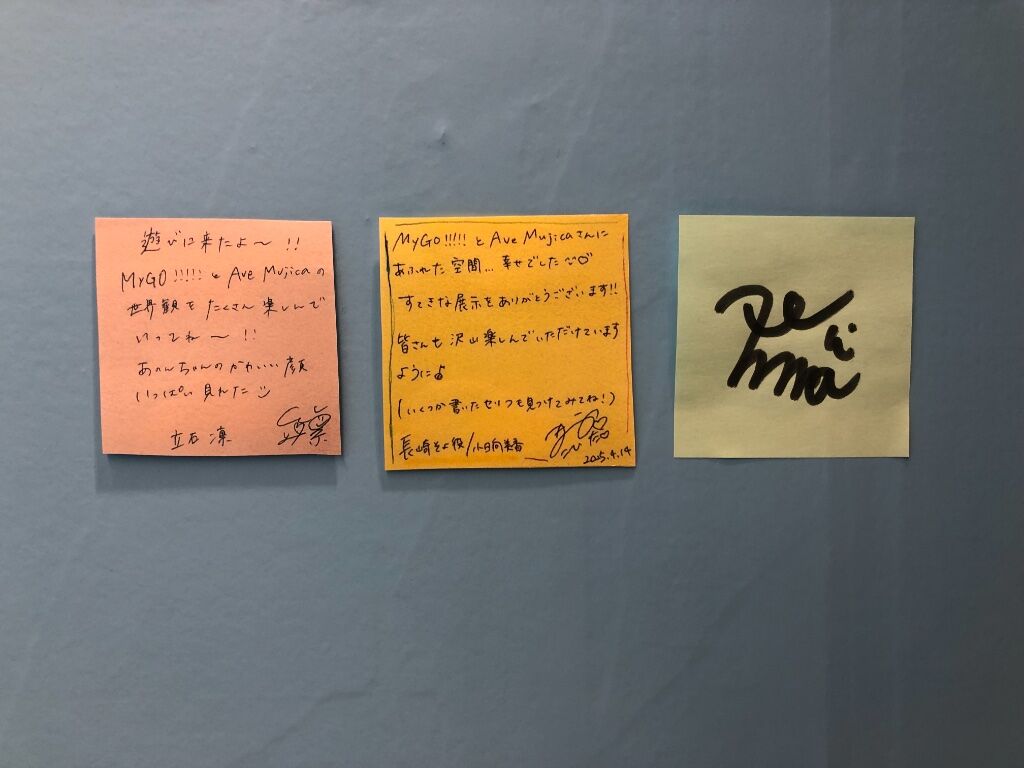 遊びに来たよ〜!!
MyGO!!!!!とAve Mujicaの
世界観をたくさん楽しんで
いってね〜!!
あのんちゃんのかわいい顔
いっぱい見れた
立石 凛
MyGO!!!!!とAve Mujicaさんに
あふれた空間…幸せでした♡
すてきな展示をありがとうございます!!
皆さんも沢山楽しんでいただけています
ように♪
(いくつか書いたセリフも見つけてみてね!)
長崎そよ役/小日向美香
2025.4.14